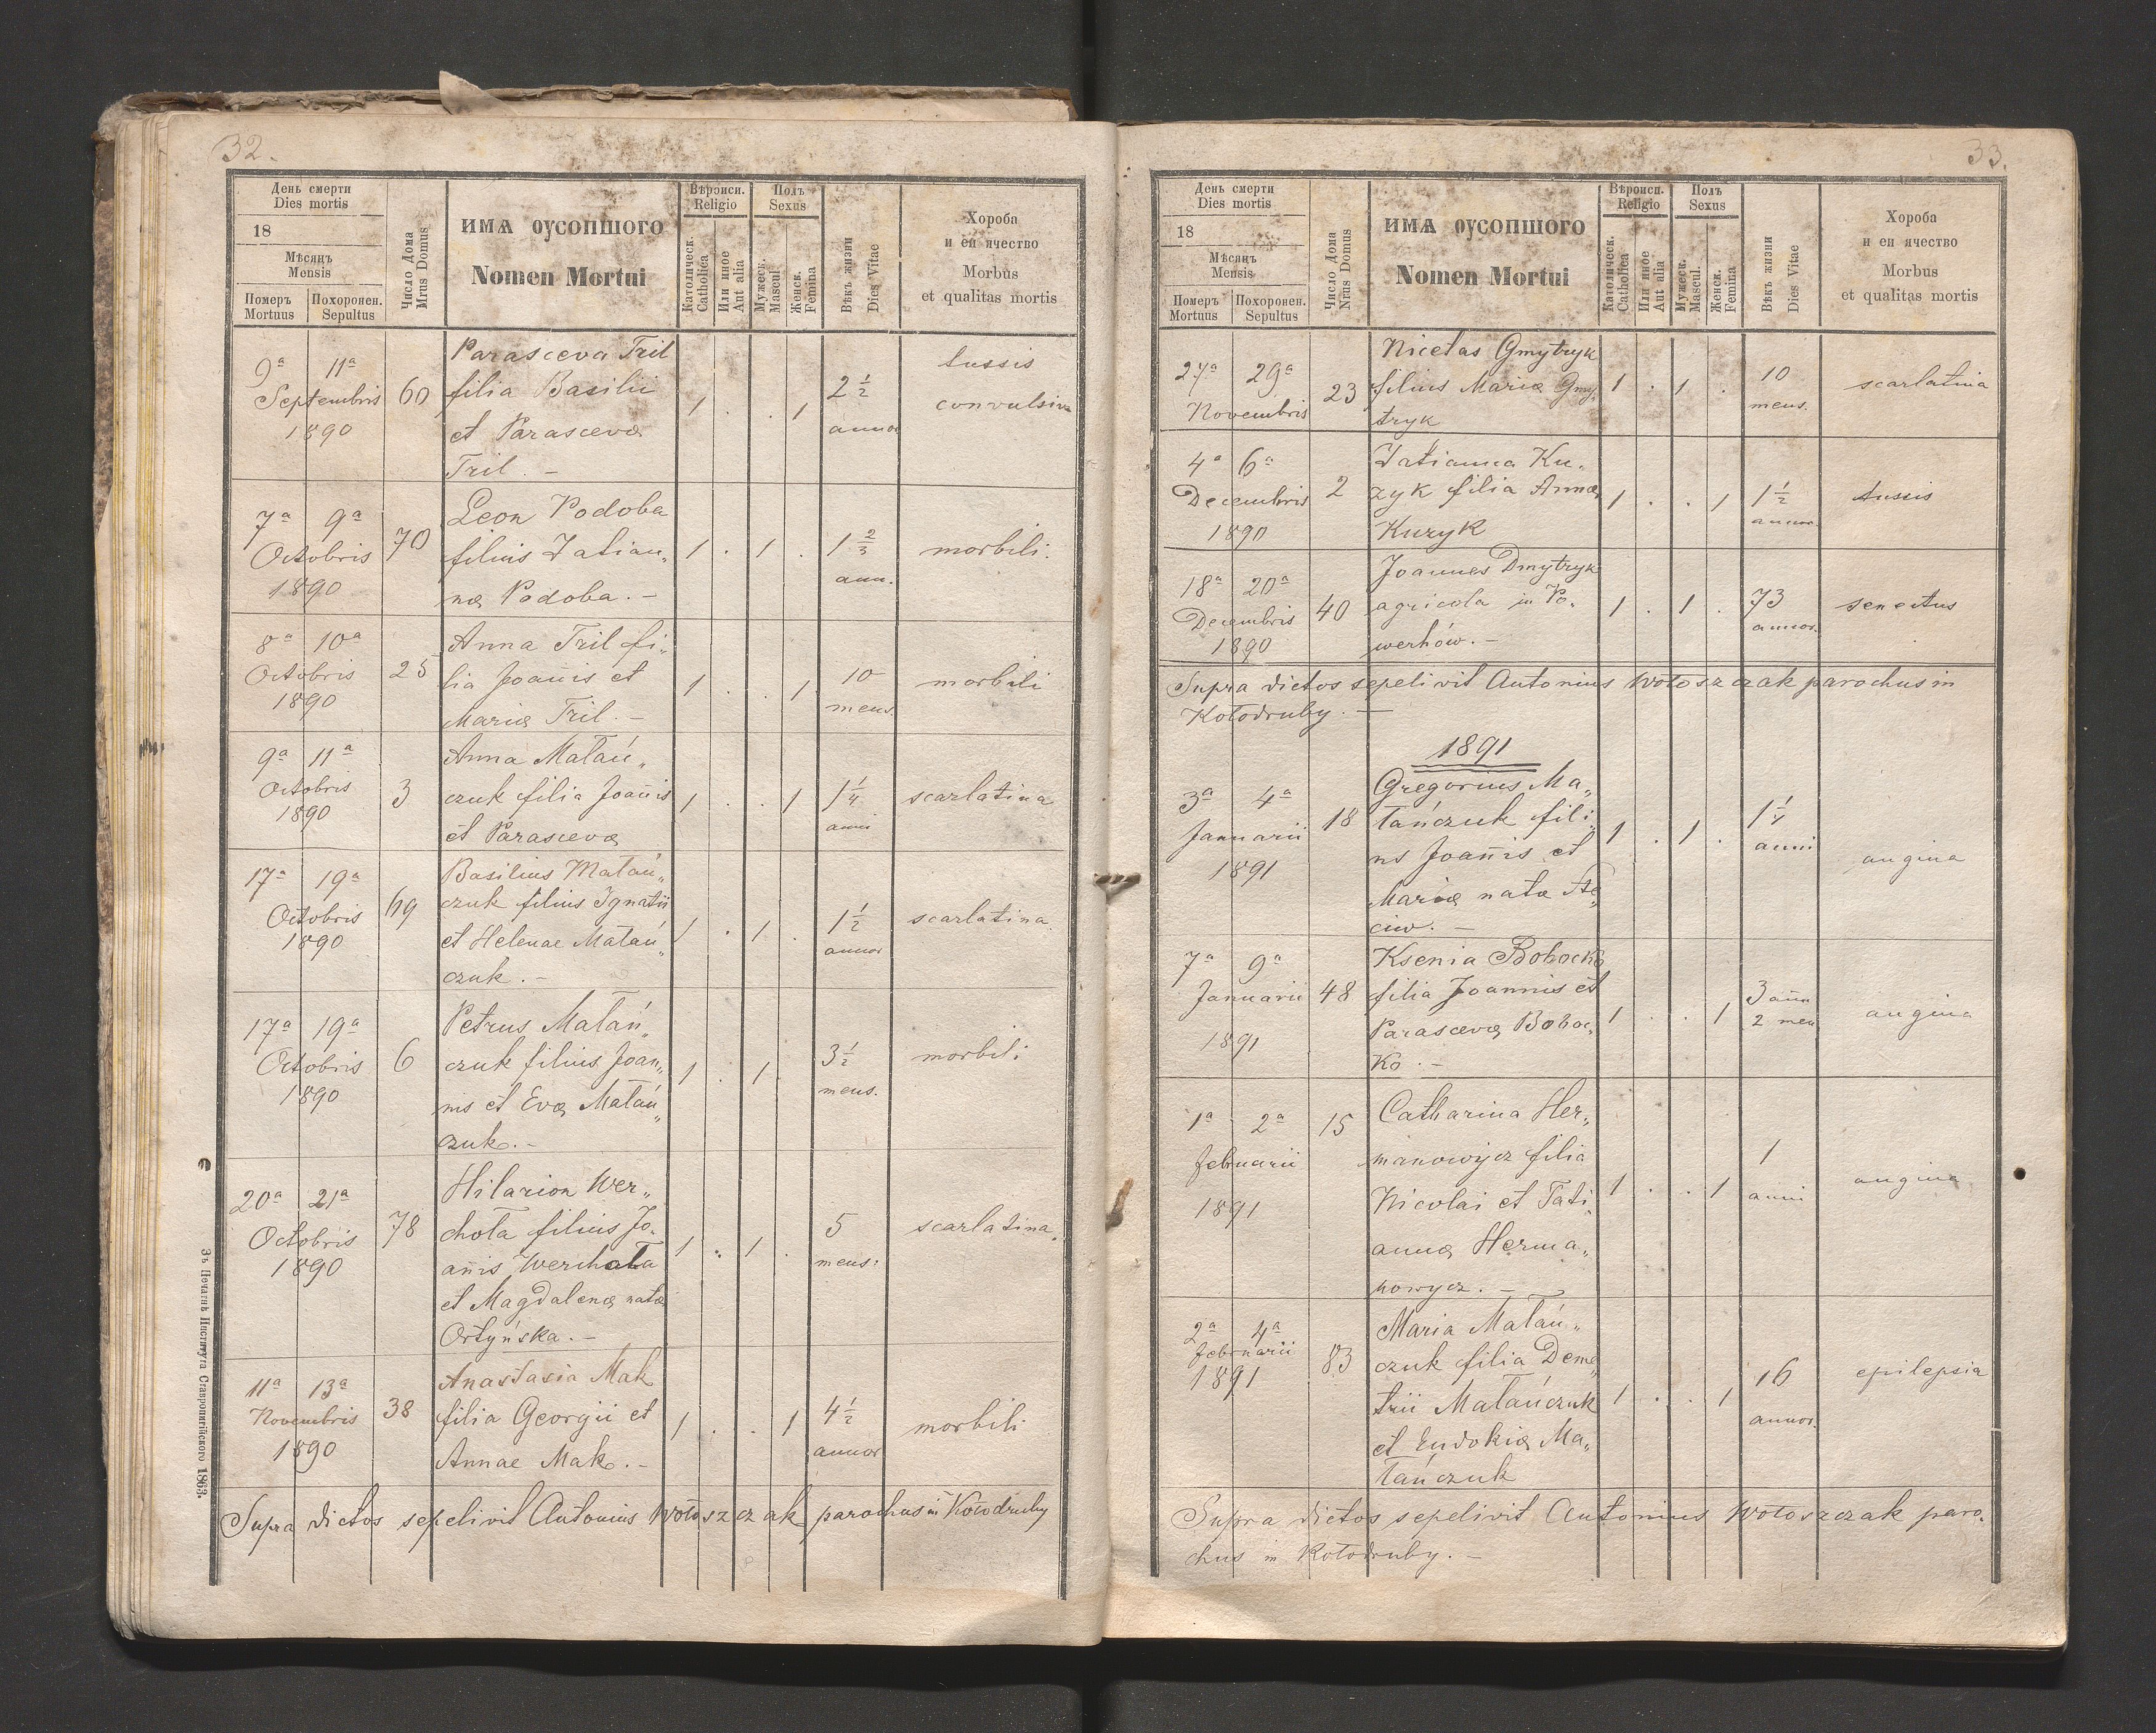 32.
День смерти
Dies mortis
18
Мѣсяцъ
Mensis
Померъ
Mortuus
Похоронен.
Sepultus
Число Дома
Mrus Domus
ИМѦ ОУСОПШОГО
Nomen Mortui
Вѣроиси.
Religio
Католическ.
Catholica
Или иное
Aut alia
Полъ
Sexus
Мужеск.
Mascul
Женск.
Femina
Вѣкъ жизни
Dies Vitae
Хороба
и еи ячество
Morbus
et qualitas mortis
9ª 11ª
Septembris
1890
60
Parasceva Tril
filia Basilii
et Parascevæ
Tril. –
1 . . 1
2 1/2
annor
tussis
convulsiva
7ª 9ª
Octobris
1890
70
Leon Podoba
filius Tatian„
næ Podoba. –
1 . 1 .
1 2/3
ann.
morbili.
8ª 10ª
Octobris
1890
25
Anna Tril fi„
lia Joañis et
Mariæ Tril. –
1 . . 1
10
mens.
morbili
9ª 11ª
Octobris
1890
3
Anna Matań„
czuk filia Joañis
et Parascevæ
1 . . 1
1 1/4
anni
scarlatina
17ª 19ª
Octobris
1890
69
Basilius Matań„
czuk filius Ignatii
et Helenae Matań„
czuk. –
1 . 1 .
1 1/2
annor
scarlatina.
17ª 19ª
Octobris
1890
6
Petrus Matań„
czuk filius Joan„
nis et Evæ Matań„
czuk. –
1 . 1 .
3 1/2
mens.
morbili
20ª 21ª
Octobris
1890
78
Hilarion Wer„
chota filius Jo„
añis Werchota
et Magdalenæ natæ
Ortyńska. –
1 . 1 .
5
mens:
scarlatina.
11ª 13ª
Novembris
1890
38
Anastasia Mak
filia Georgii et
Annae Mak. –
1 . . 1
4 1/2
annor
morbili
Supra dictos sepelivit Antonius Wołoszczak parochus in Kołodruby
Зъ Печатнѣ Института Ставропигійского 1863.
33.
День смерти
Dies mortis
18
Мѣсяцъ
Mensis
Померъ
Mortuus
Похоронен.
Sepultus
Число Дома
Nrus Domus
ИМѦ ОУСОПШОГО
Nomen Mortui
Вѣроиси.
Religio
Католическ.
Catholica
Или иное
Aut alia
Полъ
Sexus
Мужеск.
Mascul.
Женск.
Femina
Вѣкъ жизни
Dies Vitae
Хороба
и еи ячество
Morbus
et qualitas mortis
27ª 29ª
Novembris
23
Nicetas Gmytryk
filius Mariæ Gmy„
tryk
1 . 1 .
10
mens.
scarlatina
4ª 6ª
Decembris
1890
2
Tatianna Ku„
zyk filia Annæ
Kuzyk
1 . . 1
1 1/2
annor.
tussis
18ª 20ª
Decembris
1890
40
Joannes Dmytryk
agricola in Po„
werhów. –
1 . 1 .
73
annor.
senectus
Supra dictos sepelivit Antonius Wołoszczak parochus in
Kołodruby. –
1891
3ª 4ª
Januarii
1891
18
Gregorius Ma„
tańczuk fili„
us Joañis et
Mariæ natæ Ste„
ciw. –
1 . 1 .
anni
angina
7ª 9ª
Januarii
1891
48
Ksenia Bobocko
filia Joannis et
Parascevæ Boboc„
ko. –
1 . . 1
3 ann
2 men
angina
1ª 2ª
Februarii
1891
15
Catharina Her„
manowycz filia
Nicolai et Tati„
annæ Herma„
nowycz. –
1 . . 1
1
anni
angina
2ª 4ª
Februarii
1891
83
Maria Matań„
czuk filia Deme„
trii Matańczuk
et Eudokiæ Ma„
tańczuk
1 . . 1
16
annor.
epilepsia
Supra dictos sepelivit Antonius Wołoszczak paro„
chus in Kołodruby. –